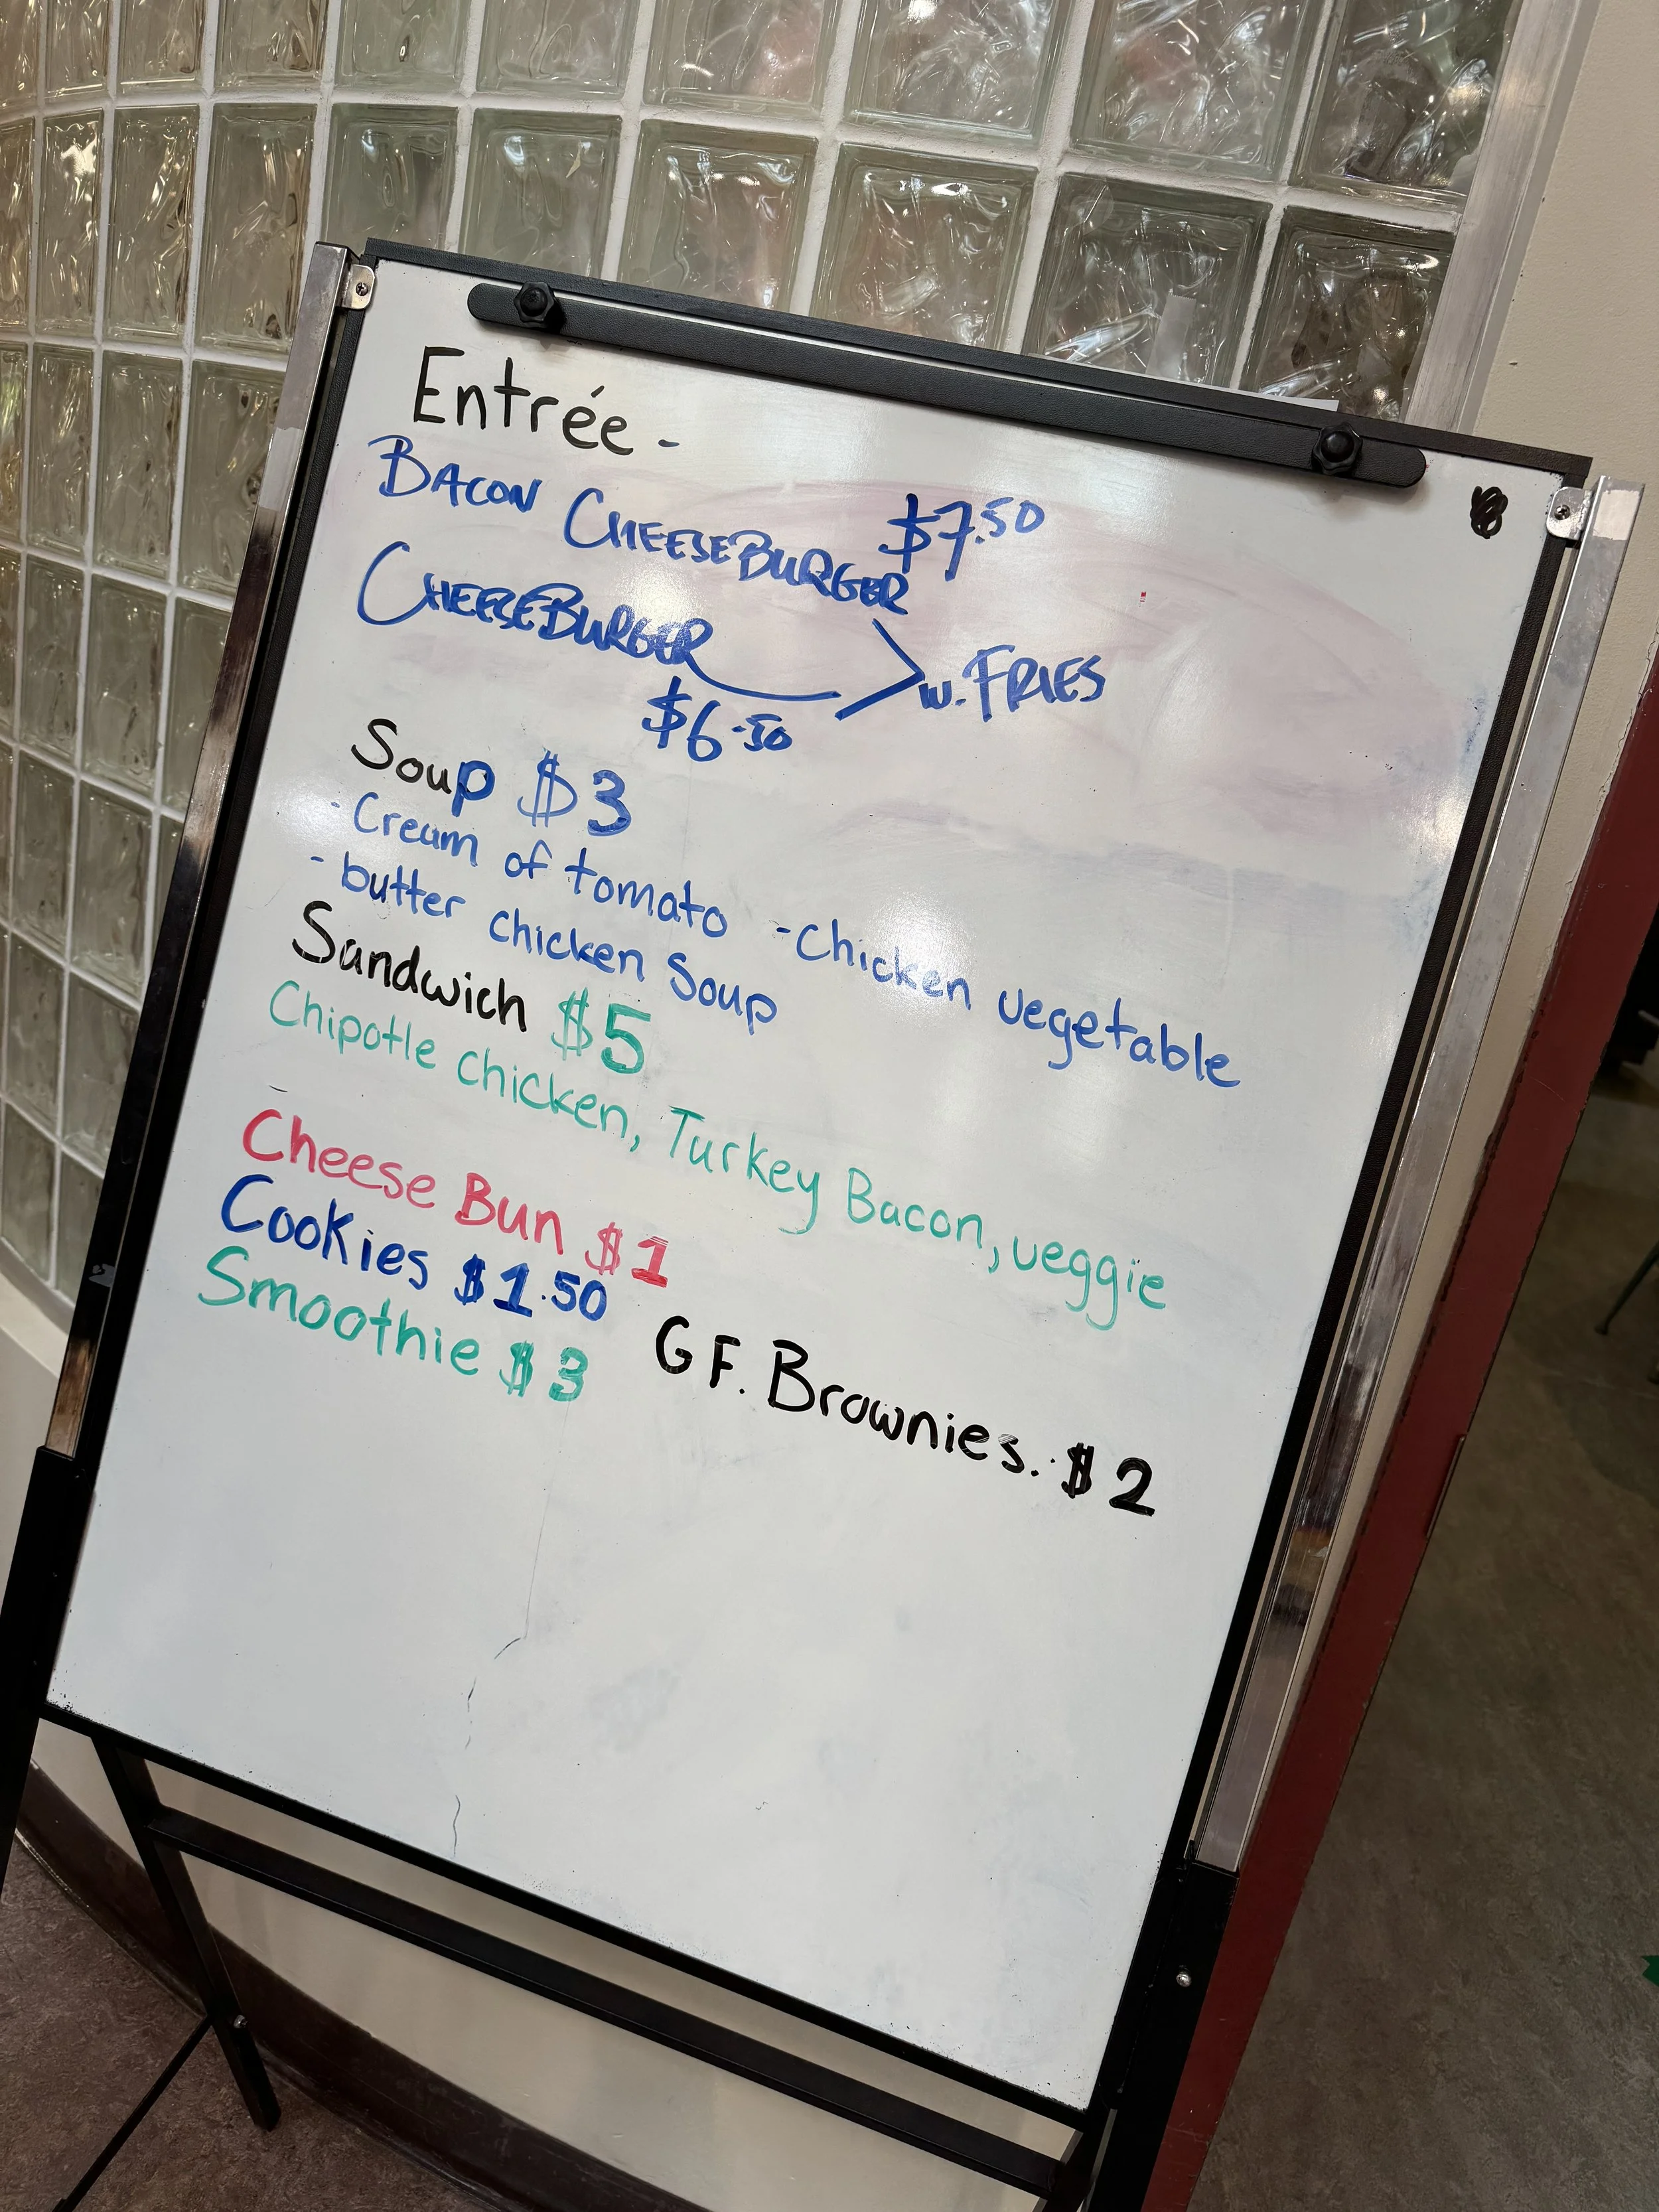 Entrée -
BACON CHEESEBURGER $7.50
CHEESEBURGER
$6.50
w. FRIES
Soup $3
- Cream of tomato - Chicken vegetable
- butter chicken Soup
Sandwich $5
Chipotle Chicken, Turkey Bacon, veggie
Cheese Bun $1
Cookies $1.50
Smoothie $3
GF. Brownies. $2